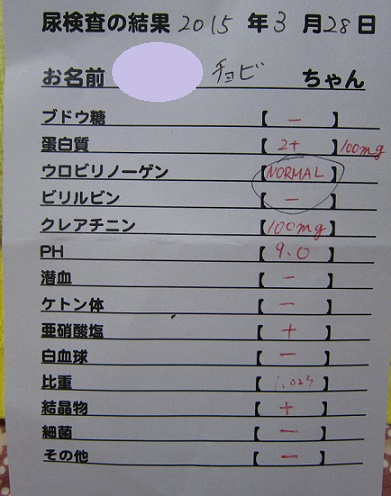 尿検査の結果 2015 年 3 月 28 日
お名前 チョビ ちゃん
ブドウ糖 【 － 】
蛋白質 【 2+ 】 100mg
ウロビリノーゲン 【 NORMAL 】
ビリルビン 【 － 】
クレアチニン 【 100mg 】
PH 【 9.0 】
潜血 【 － 】
ケトン体 【 － 】
亜硝酸塩 【 + 】
白血球 【 － 】
比重 【 1.025 】
結晶物 【 + 】
細菌 【 － 】
その他 【 － 】